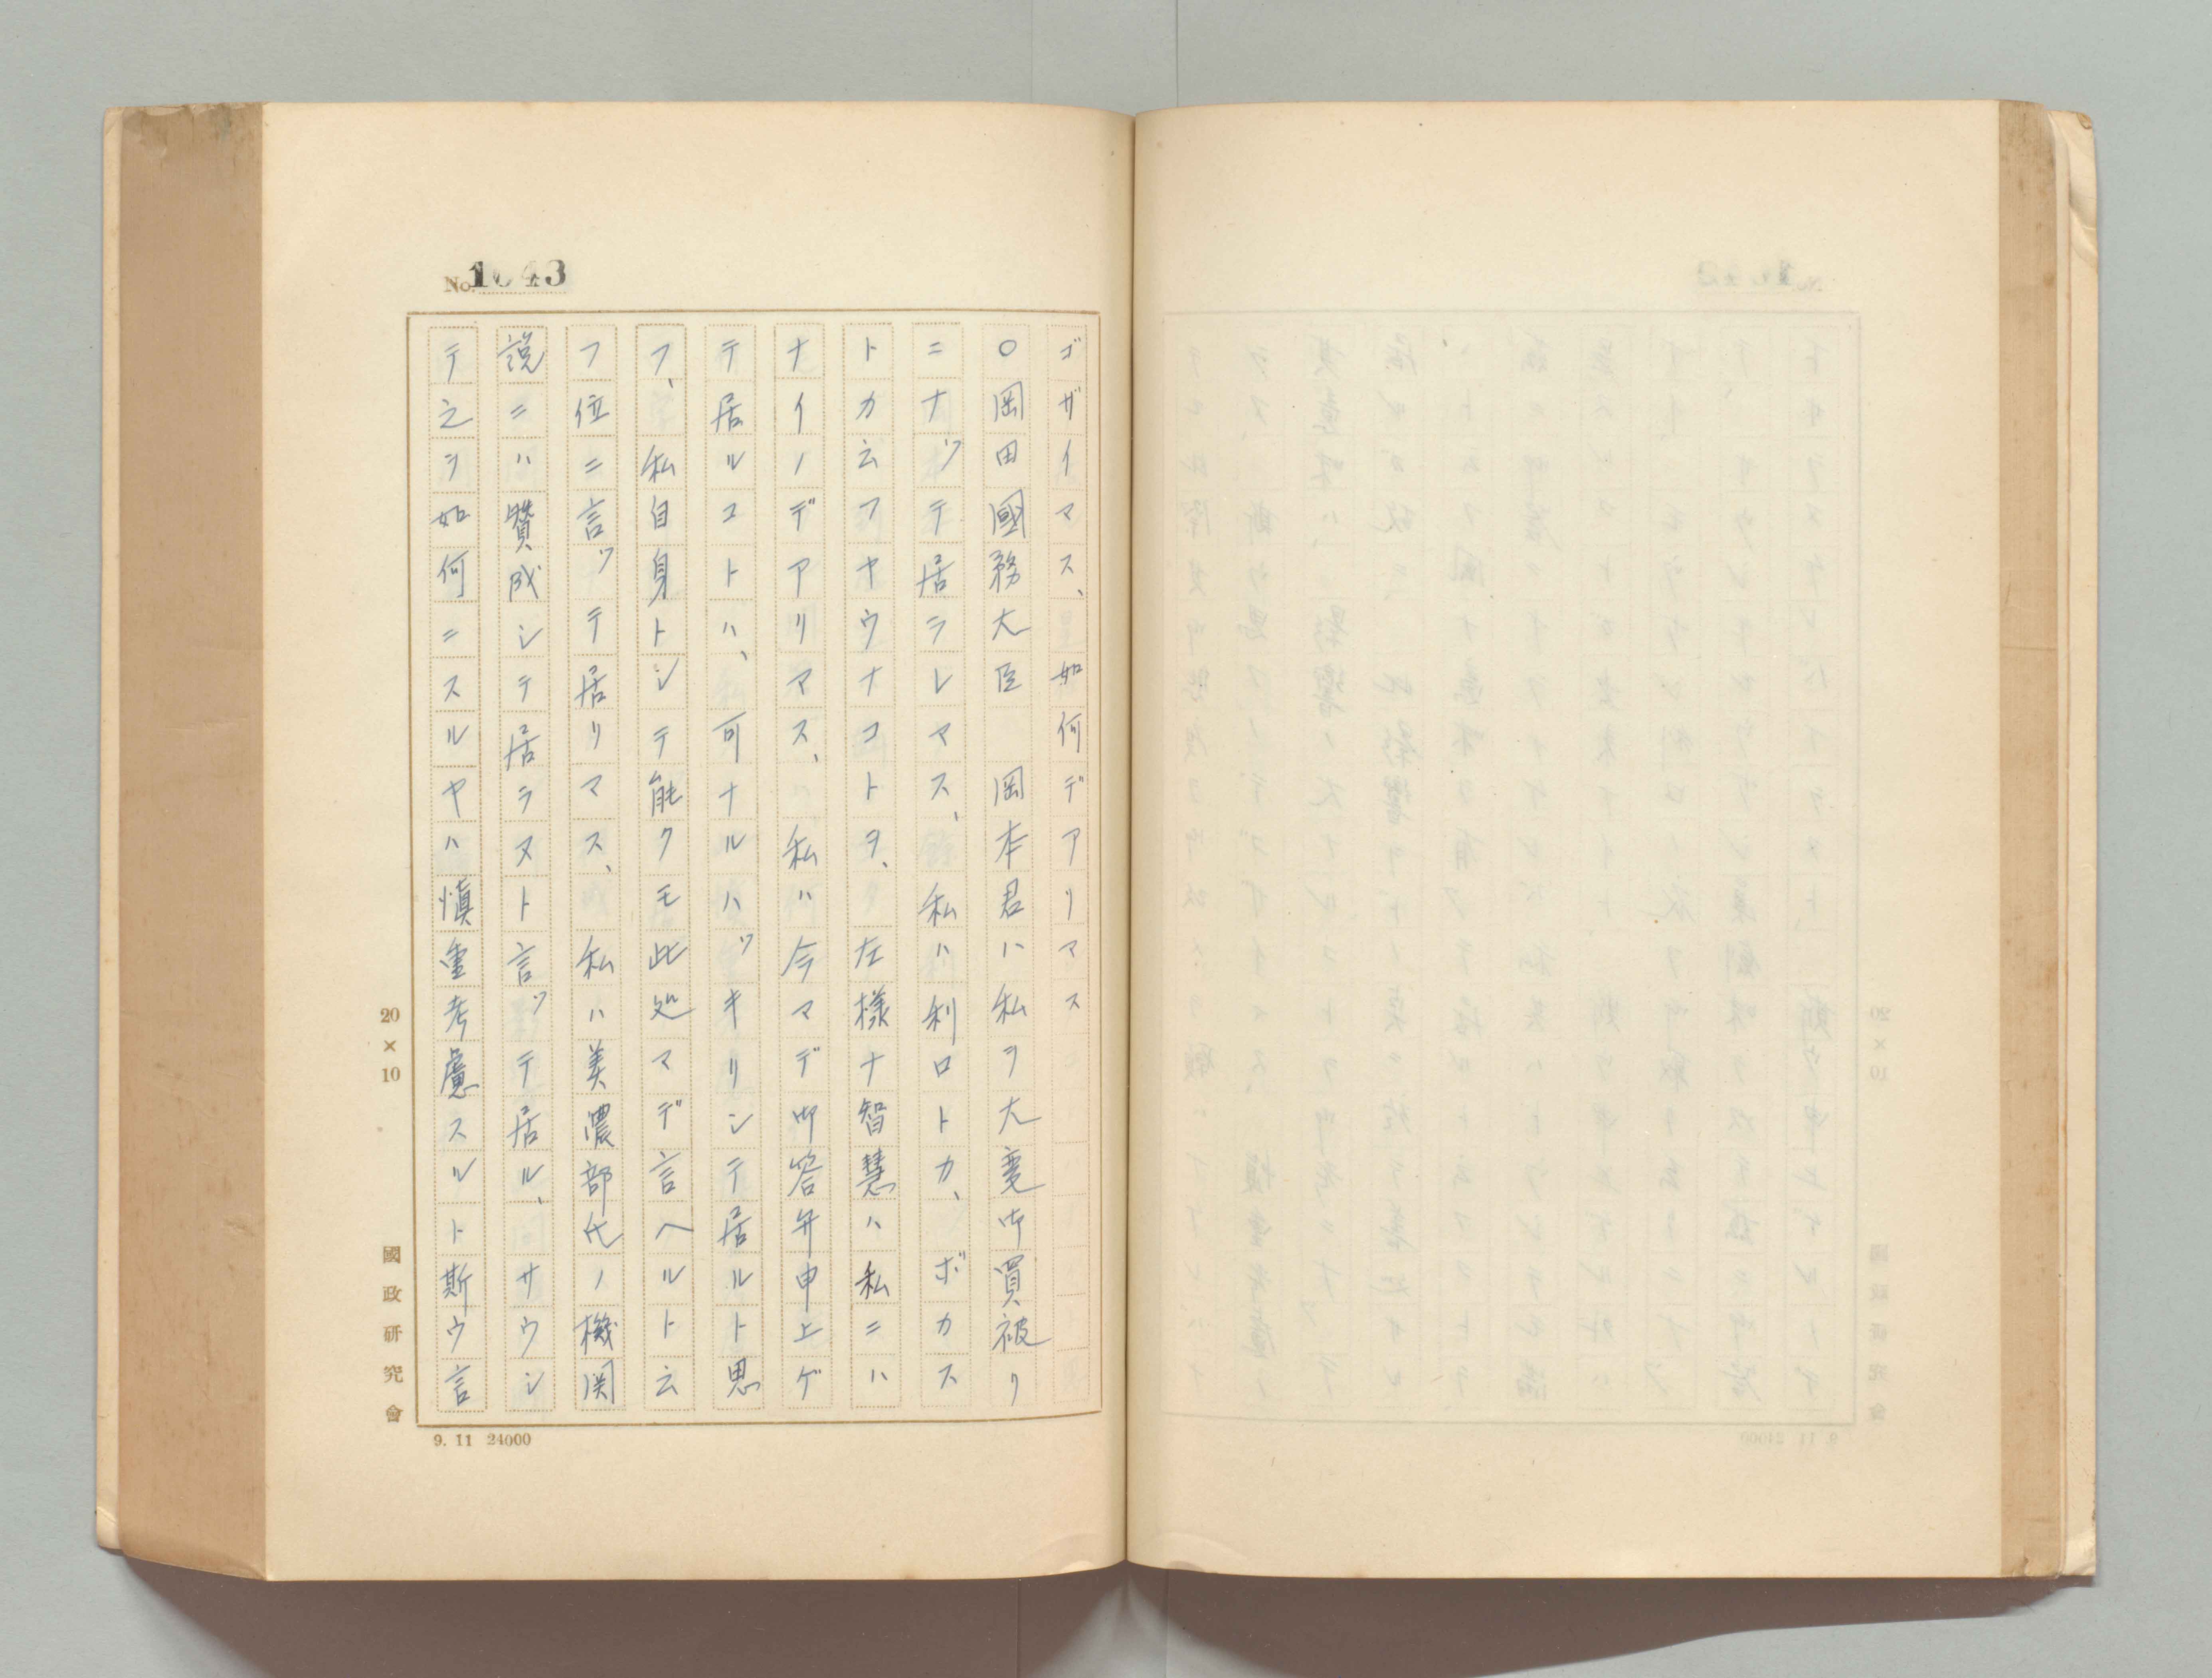 No. 1043
ゴザイマス、如何デアリマス
○岡田國務大臣　岡本君ハ私ヲ大変御買被リ
ニナッテ居ラレマス、私ハ利口トカ、ボカス
トカ云フヤウナコトヲ、左様ナ智慧ハ私ニハ
ナイノデアリマス、私ハ今マデ御答弁申上ゲ
テ居ルコトハ、可ナルハッキリシテ居ルト思
フ、私自身トシテ能クモ此処マデ言ヘルト云
フ位ニ言ッテ居リマス、私ハ美濃部氏ノ機関
説ニハ賛成シテ居ラヌト言ッテ居ル、サウシ
テ之ヲ如何ニスルヤハ慎重考慮スルト斯ウ言
20×10
國政研究會
9. 11 24000